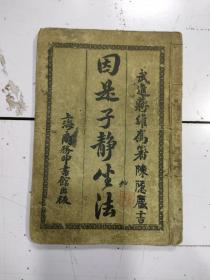 武進蔣維喬著陳隱廬書
因是子静坐法
上海商務印書館出版